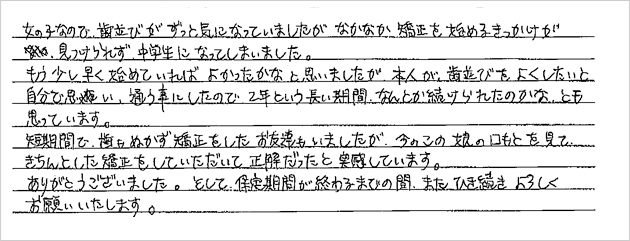 女の子なので、歯並びがずっと気になっていましたが なかなか、矯正を始めるきっかけが
見つけられず 中学生になってしまいました。
もう少し早く始めていれば よかったかなと思いましたが、本人が、歯並びをよくしたいと
自分で思い、通う事にしたので 2年という長い期間、なんとか続けられたのかな、とも
思っています。
短期間で、歯もぬかず矯正をしたお友達もいましたが、今のこの娘の口もとを見て、
きちんとした矯正をしていただいて 正解だったと 実感しています。
ありがとうございました。そして、保定期間が終わるまでの間、また ひき続き よろしく
お願いいたします。